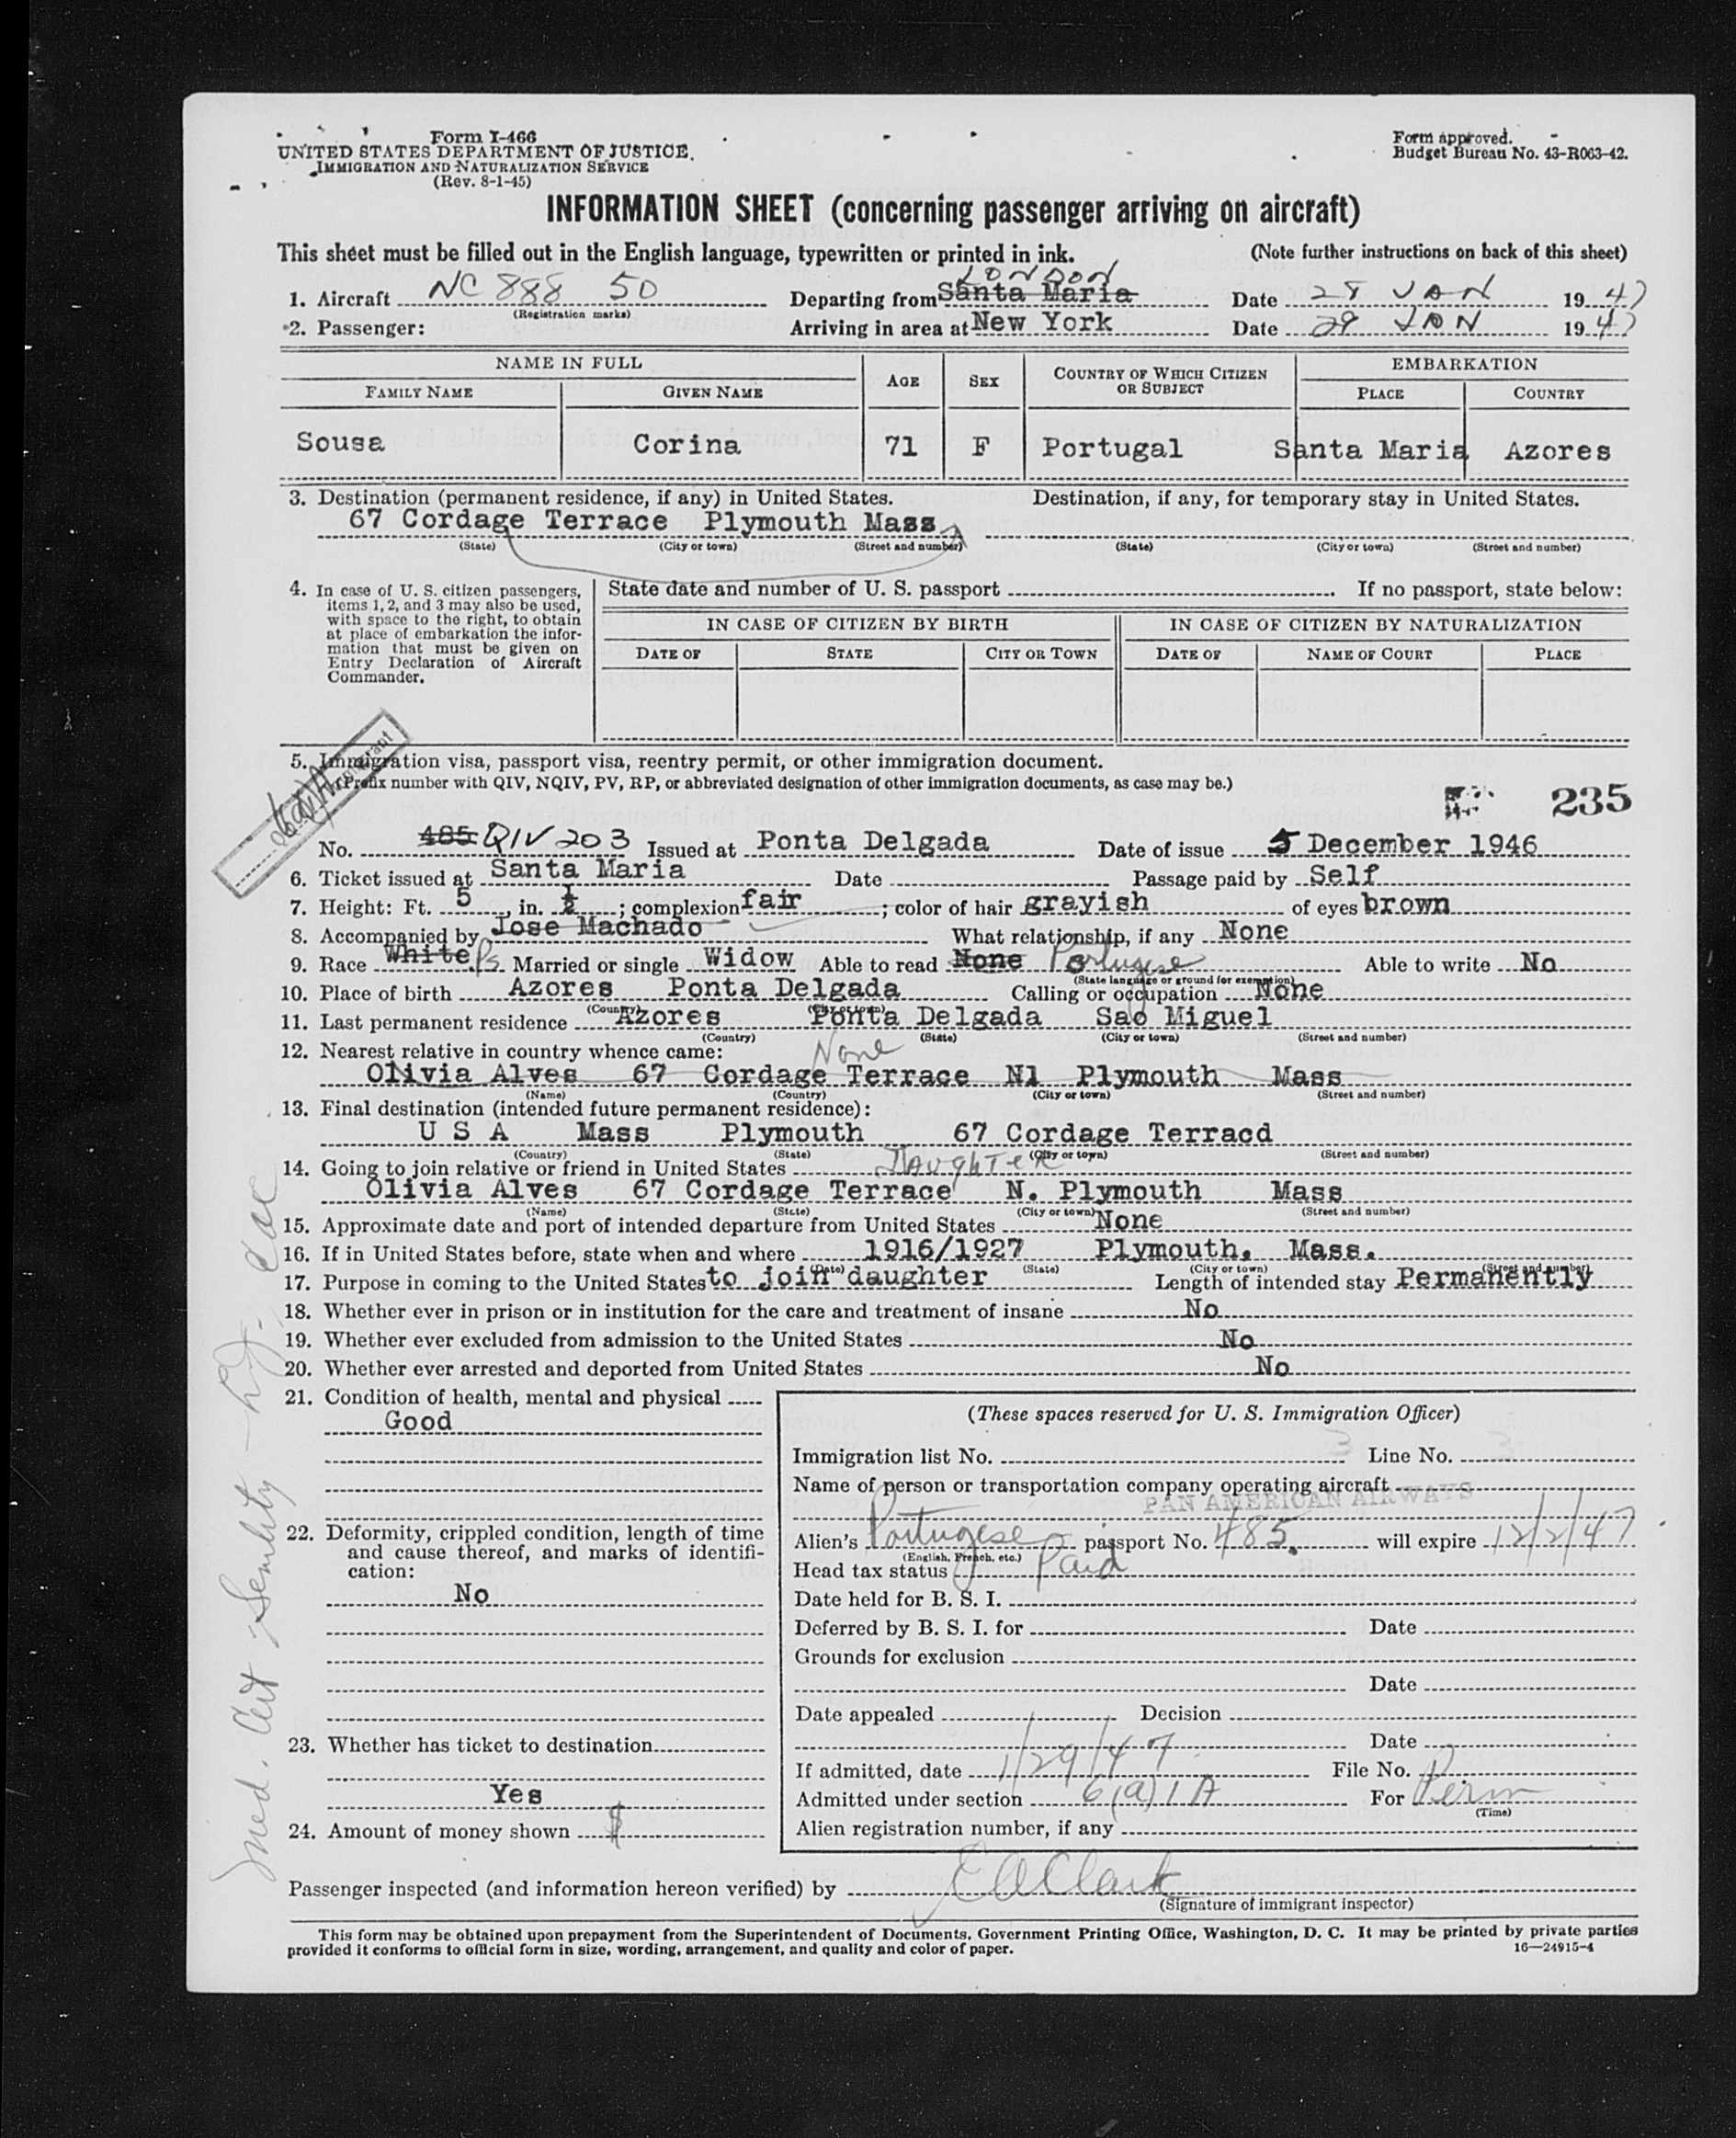 Form I-466
UNITED STATES DEPARTMENT OF JUSTICE
IMMIGRATION AND NATURALIZATION SERVICE
(Rev. 8-1-45)
Form approved.
Budget Bureau No. 43-R063-42.
INFORMATION SHEET (concerning passenger arriving on aircraft)
This sheet must be filled out in the English language, typewritten or printed in ink. (Note further instructions on back of this sheet)
LONDON
1. Aircraft NC 888 50 Departing from Santa Maria Date 28 JAN 1947
(Registration marks)
2. Passenger: Arriving in area at New York Date 29 JAN 1947
NAME IN FULL AGE SEX COUNTRY OF WHICH CITIZEN OR SUBJECT EMBARKATION
FAMILY NAME GIVEN NAME PLACE COUNTRY
Sousa Corina 71 F Portugal Santa Maria Azores
3. Destination (permanent residence, if any) in United States. Destination, if any, for temporary stay in United States.
67 Cordage Terrace Plymouth Mass
(State) (City or town) (Street and number) (State) (City or town) (Street and number)
4. In case of U. S. citizen passengers, items 1, 2, and 3 may also be used, with space to the right, to obtain at place of embarkation the information that must be given on Entry Declaration of Aircraft Commander.
State date and number of U. S. passport If no passport, state below:
IN CASE OF CITIZEN BY BIRTH IN CASE OF CITIZEN BY NATURALIZATION
DATE OF STATE CITY OR TOWN DATE OF NAME OF COURT PLACE
5. Immigration visa, passport visa, reentry permit, or other immigration document.
(Prefix number with QIV, NQIV, PV, RP, or abbreviated designation of other immigration documents, as case may be.)
235
No. 485 QIV 203 Issued at Ponta Delgada Date of issue 5 December 1946
6. Ticket issued at Santa Maria Date Passage paid by Self
7. Height: Ft. 5, in. ½; complexion fair; color of hair grayish of eyes brown
8. Accompanied by Jose Machado What relationship, if any None
9. Race White Ps Married or single Widow Able to read None Portugese Able to write No
(State language or ground for exemption)
10. Place of birth Azores Ponta Delgada Calling or occupation None
(Country) (City or town)
11. Last permanent residence Azores Ponta Delgada Sao Miguel
(Country) (State) (City or town) (Street and number)
12. Nearest relative in country whence came: None
Olivia Alves 67 Cordage Terrace Nl Plymouth Mass
(Name) (Country) (City or town) (Street and number)
13. Final destination (intended future permanent residence):
U S A Mass Plymouth 67 Cordage Terracd
(Country) (State) (City or town) (Street and number)
14. Going to join relative or friend in United States DAUGHTER
Olivia Alves 67 Cordage Terrace N. Plymouth Mass
(Name) (State) (City or town) (Street and number)
15. Approximate date and port of intended departure from United States None
16. If in United States before, state when and where 1916/1927 Plymouth. Mass.
(Date) (State) (City or town) (Street and number)
17. Purpose in coming to the United States to join daughter Length of intended stay Permanently
18. Whether ever in prison or in institution for the care and treatment of insane No
19. Whether ever excluded from admission to the United States No
20. Whether ever arrested and deported from United States No
21. Condition of health, mental and physical
Good
22. Deformity, crippled condition, length of time and cause thereof, and marks of identification:
No
23. Whether has ticket to destination
Yes
24. Amount of money shown $
(These spaces reserved for U. S. Immigration Officer)
Immigration list No. 3 Line No. 3
Name of person or transportation company operating aircraft
PAN AMERICAN AIRWAYS
Alien's Portugese passport No. 485. will expire 12/2/47
(English, French, etc.)
Head tax status Paid
Date held for B. S. I.
Deferred by B. S. I. for Date
Grounds for exclusion
Date
Date appealed Decision
Date
If admitted, date 1/29/47 File No.
Admitted under section 6(a)1A For Perm
(Time)
Alien registration number, if any
Med. Cert. Senility
Passenger inspected (and information hereon verified) by EAClark
(Signature of immigrant inspector)
This form may be obtained upon prepayment from the Superintendent of Documents, Government Printing Office, Washington, D. C. It may be printed by private parties
provided it conforms to official form in size, wording, arrangement, and quality and color of paper. 16—24915-4